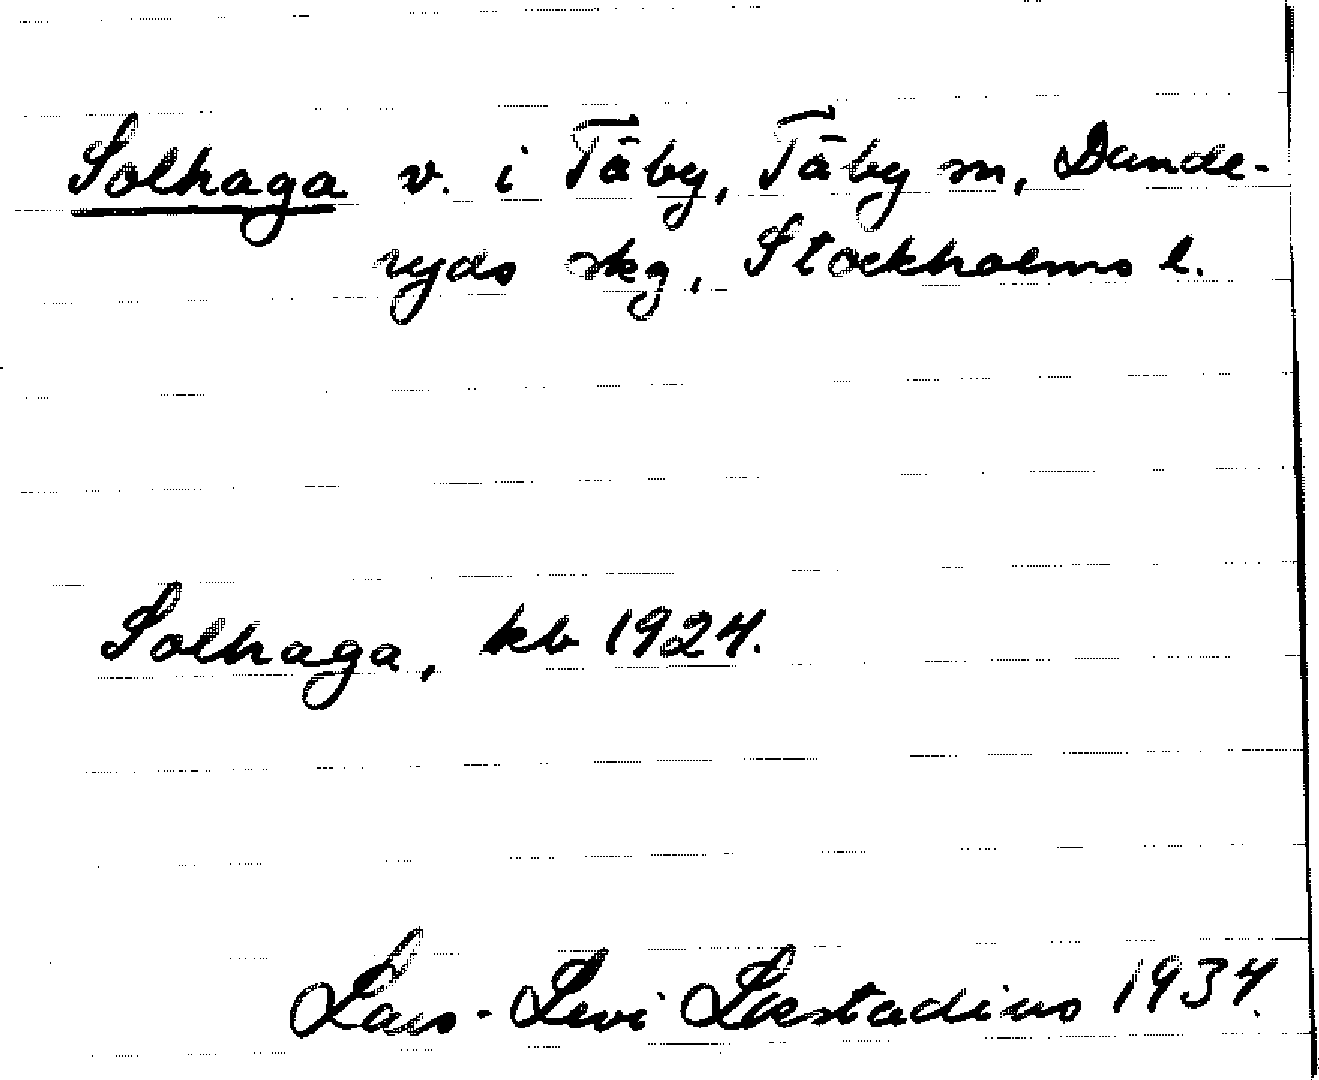 Solhaga v. i Täby, Täby sn, Dande-
ryds skg, Stockholms l.
Solhaga, kb 1924.
Lars-Levi Læstadius 1934.